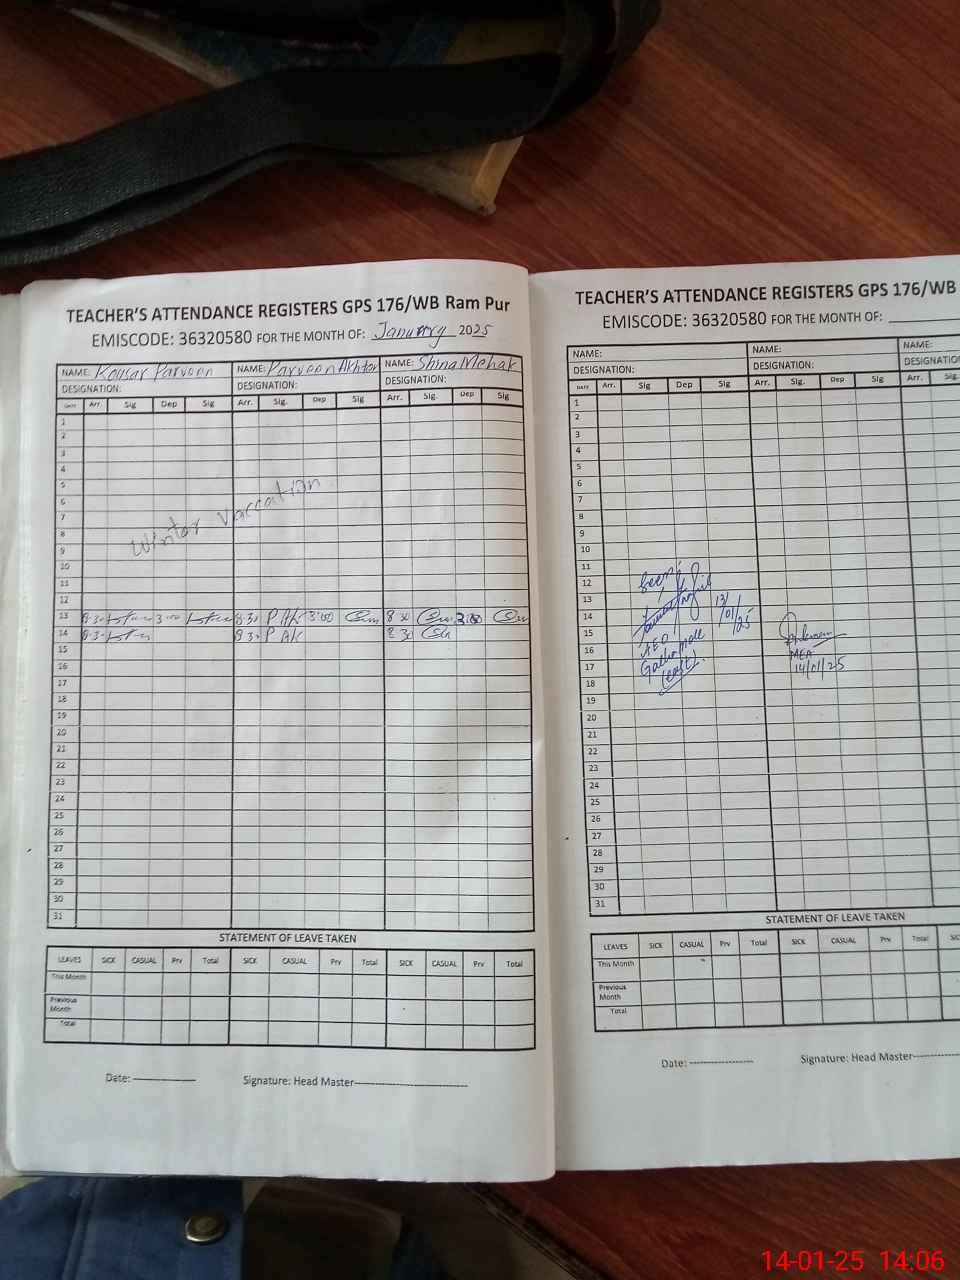 TEACHER'S ATTENDANCE REGISTERS GPS 176/WB Ram Pur
EMISCODE: 36320580 FOR THE MONTH OF: January 2025
NAME: Kousar Parveen NAME: Parveen Akhtar NAME: Shina Mehak
DESIGNATION: DESIGNATION: DESIGNATION:
DATE Arr. Sig Dep Sig Arr. Sig. Dep Sig Arr. Sig. Dep Sig
1
2
3
4
5
6
7
8
9
10
11
12
Winter Vaccation
13 8:30 3:00 8:30 P Ak 3:00 8:30 3:00
14 8:30 8:30 P Ak 8:30
15
16
17
18
19
20
21
22
23
24
25
26
27
28
29
30
31
STATEMENT OF LEAVE TAKEN
LEAVES SICK CASUAL Prv Total SICK CASUAL Prv Total SICK CASUAL Prv Total
This Month
Previous Month
Total
Date: ---------------- Signature: Head Master-----------------------------
TEACHER'S ATTENDANCE REGISTERS GPS 176/WB
EMISCODE: 36320580 FOR THE MONTH OF:
NAME: NAME: NAME:
DESIGNATION: DESIGNATION: DESIGNATIO
DATE Arr. Sig Dep Sig Arr. Sig. Dep Sig Arr. Sig.
1
2
3
4
5
6
7
8
9
10
11
12
13
14
15
16
17
18
19
20
21
22
23
24
25
26
27
28
29
30
31
Seen
13/01/25
AEO
MEA
14/01/25
STATEMENT OF LEAVE TAKEN
LEAVES SICK CASUAL Prv Total SICK CASUAL Prv Total SIC
This Month
Previous Month
Total
Date: ---------------- Signature: Head Master-----------
14-01-25 14:06